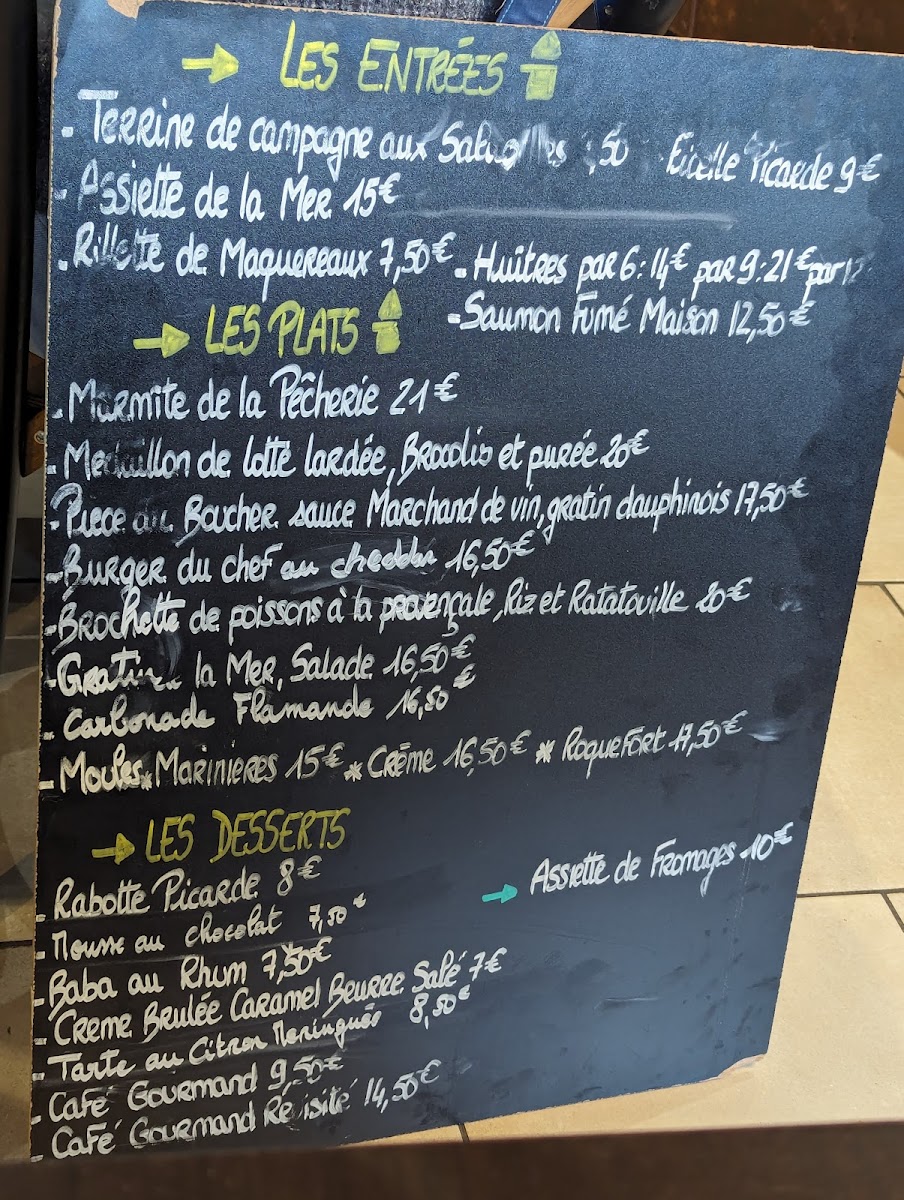 LES ENTRÉES
- Terrine de campagne aux ,50 . Ficelle Picarde 9€
- Assiette de la Mer 15€
- Rillette de Maquereaux 7,50€ - Huitres par 6: 14€ par 9: 21€ par
- Saumon Fumé Maison 12,50€
LES PLATS
- Marmite de la Pêcherie 21€
- Medaillon de lotte lardée, Brocolis et purée 20€
- Piece du Boucher sauce Marchand de vin, gratin dauphinois 17,50€
- Burger du chef au cheddar 16,50€
- Brochette de poissons à la provençale, Riz et Ratatouille 20€
- Gratin la Mer, Salade 16,50€
- Carbonade Flamande 16,50€
- Moules * Marinieres 15€ * Crème 16,50€ * Roquefort 17,50€
LES DESSERTS
Assiette de Fromages 10€
- Rabotte Picarde 8€
- Mousse au chocolat 7,50€
- Baba au Rhum 7,50€
- Creme Brulée Caramel Beurre Salé 7€
- Tarte au Citron Meringués 8,50€
- Café Gourmand 9,50€
- Café Gourmand Revisité 14,50€